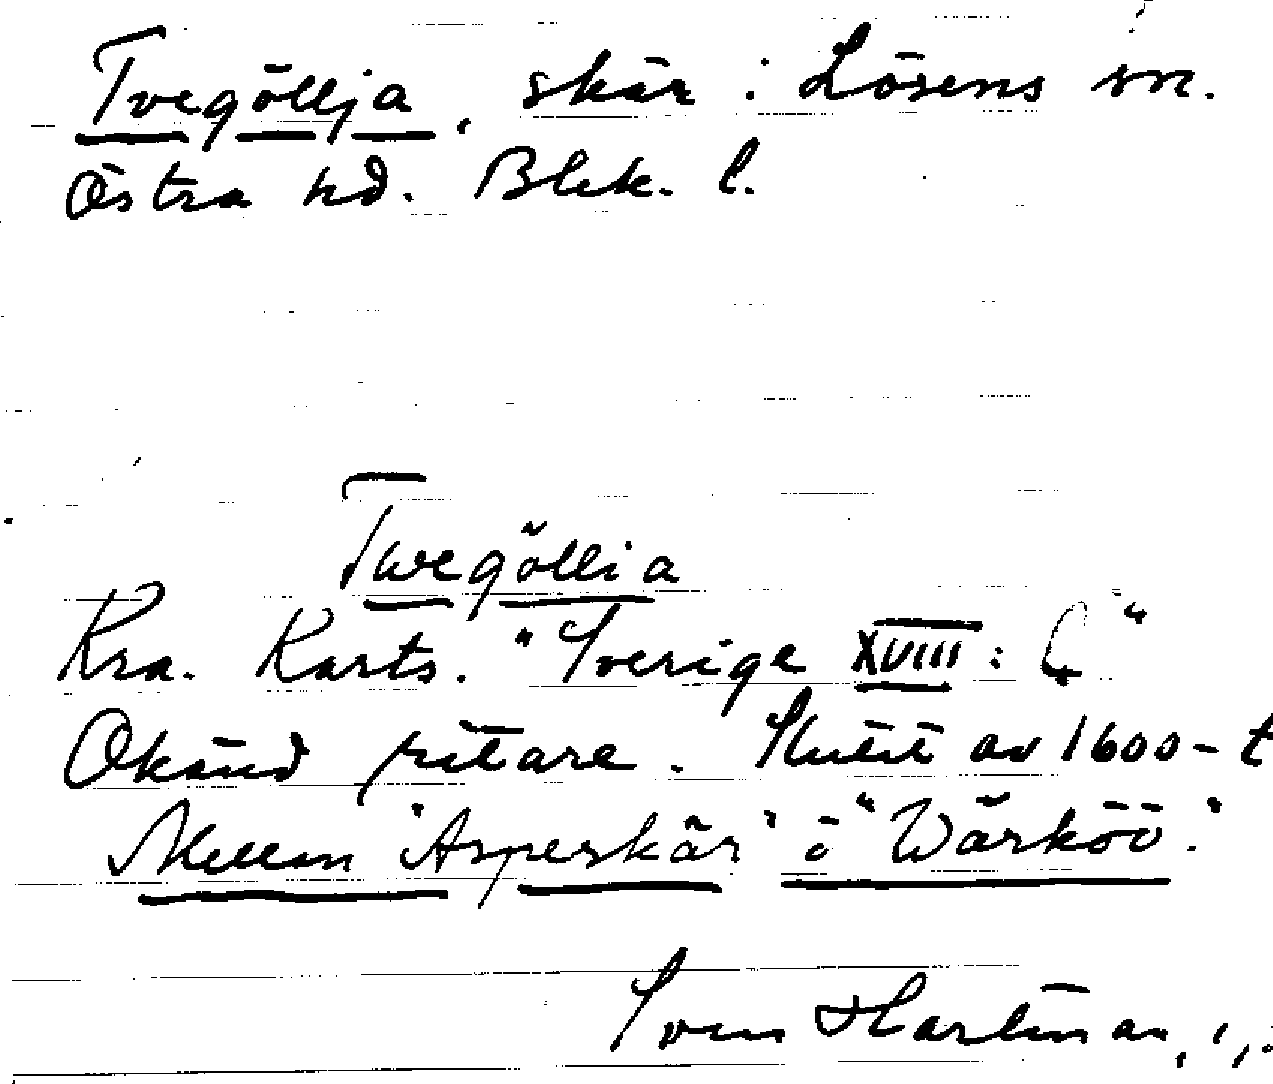 Tvegöllja, skär i Lösens sn.
Östra hd. Blek. l.
Twegöllia
Kra. Karts. "Sverige XVIII:
Okänd ritare. Slutet av 1600-t
Mellan "Asperskär" o "Wärköö".
Sven Hartman